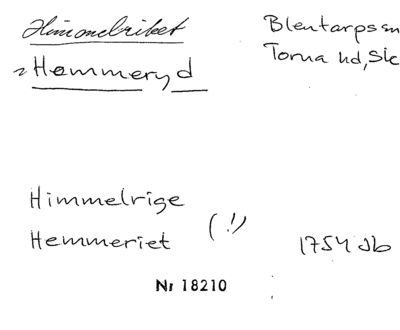 Himmelriket
Blentarps sn
Hemmeryd
Torna hd, Sk
Himmelrige
(!)
Hemmeriet
1754 Jb
Nr 18210